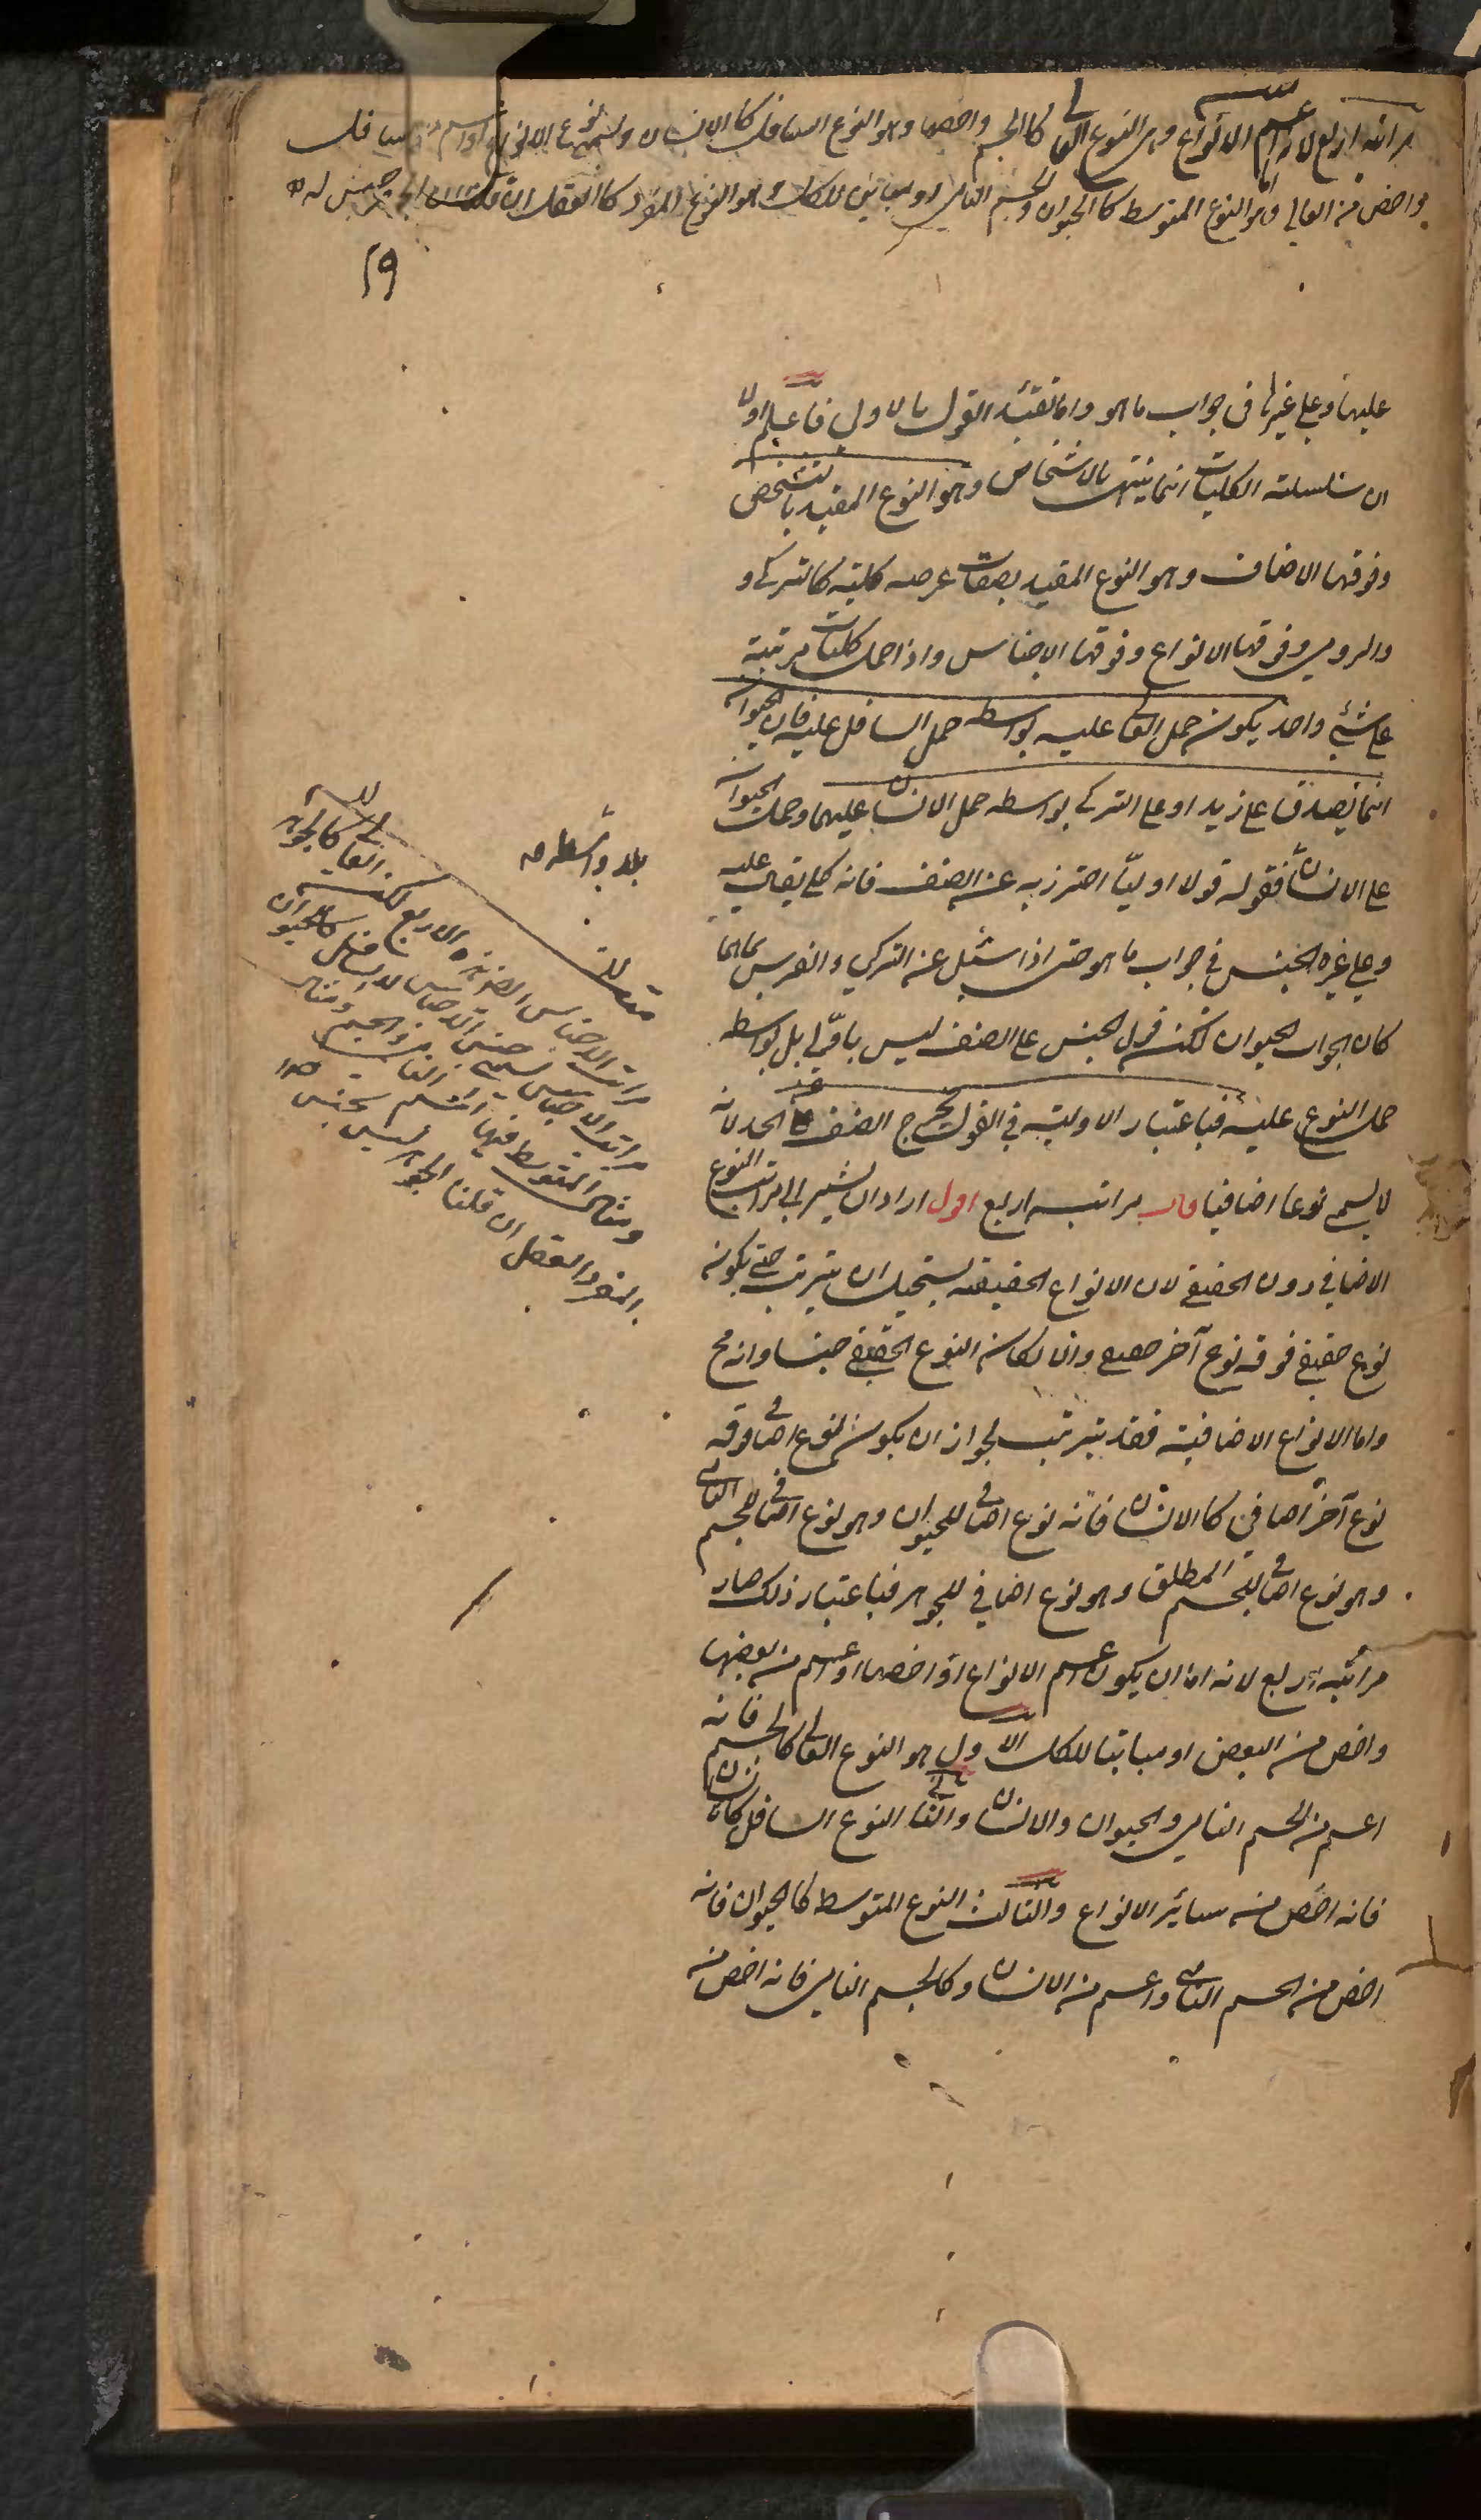 مراتبه اربع لانه اما اعم الانواع وهو النوع العالى كالجسم واخصها وهو النوع السافل كالانسان ويسمى نوع الانواع او اعم من السافل
واخص من العالى وهو النوع المتوسط كالحيوان والجسم النامى او مباين للكل وهو النوع المفرد كالعقل ان قلنا ان الجوهر جنس له
٢٩
عليها وعلى غيرها فى جواب ما هو واما تقييد القول بالاولى فاعلم اولا
ان سلسلة الكليات انما ينتهى بالاشخاص وهو النوع المقيد بالتشخص
وفوقها الاصناف وهو النوع المقيد بصفات عرضه كلية كالتركى و
والرومى وفوقها الانواع وفوقها الاجناس واذا حمل كليات مرتبة
على شئى واحد يكون حمل العالى عليه بواسطه حمل السافل عليه فان الحيوان
انما يصدق على زيد او على التركى بواسطه حمل الانسان عليهما وحمل الحيوان
على الانسان فقوله قولا اوليا احترز به عن الصنف فانه كلى يقال عليه
وعلى غيره الجنس فى جواب ما هو حتى اذا سئل عن التركى والفرس بما هما
كان الجواب الحيوان لكن قول الجنس على الصنف ليس باولى بل بواسطه
حمل النوع عليه فباعتبار الاولية فى القول يخرج الصنف عن الحد لانه
لا يسمى نوعا اضافيا قال مراتبه اربع اقول اراد ان يشير الى مراتب النوع
الاضافى دون الحقيقى لان الانواع الحقيقة يستحيل ان يترتب حتى يكون
نوع حقيقى فوقه نوع آخر حقيقى والا لكان النوع الحقيقى جنسا وانه مح
واما الانواع الاضافية فقد يترتب لجواز ان يكون نوع اضافى فوقه
نوع آخر اضافى كالانسان فانه نوع اضافى للحيوان وهو نوع اضافى للجسم النامى
وهو نوع اضافى للجسم المطلق وهو نوع اضافى للجوهر فباعتبار ذلك صار
مراتبه اربع لانه اما ان يكون اعم الانواع او اخصها او اعم من بعضها
واخص من البعض او مباينا للكل الاول هو النوع العالى كالجسم فانه
اعم من الجسم النامى والحيوان والانسان والثانى النوع السافل كالانسان
فانه اخص من سائر الانواع والثالث النوع المتوسط كالحيوان فانه
اخص من الجسم النامى واعم من الانسان وكالجسم النامى فانه اخص من
بلا واسطه
مراتب الاجناس الاربع لكن العالى كالجوهر
مراتب الاجناس يسمى جنس الاجناس لا السافل كالحيوان
ومثال المتوسط فيها الجسم النامى والجسم ومثال
المفرد العقل ان قلنا الجوهر ليس بجنس